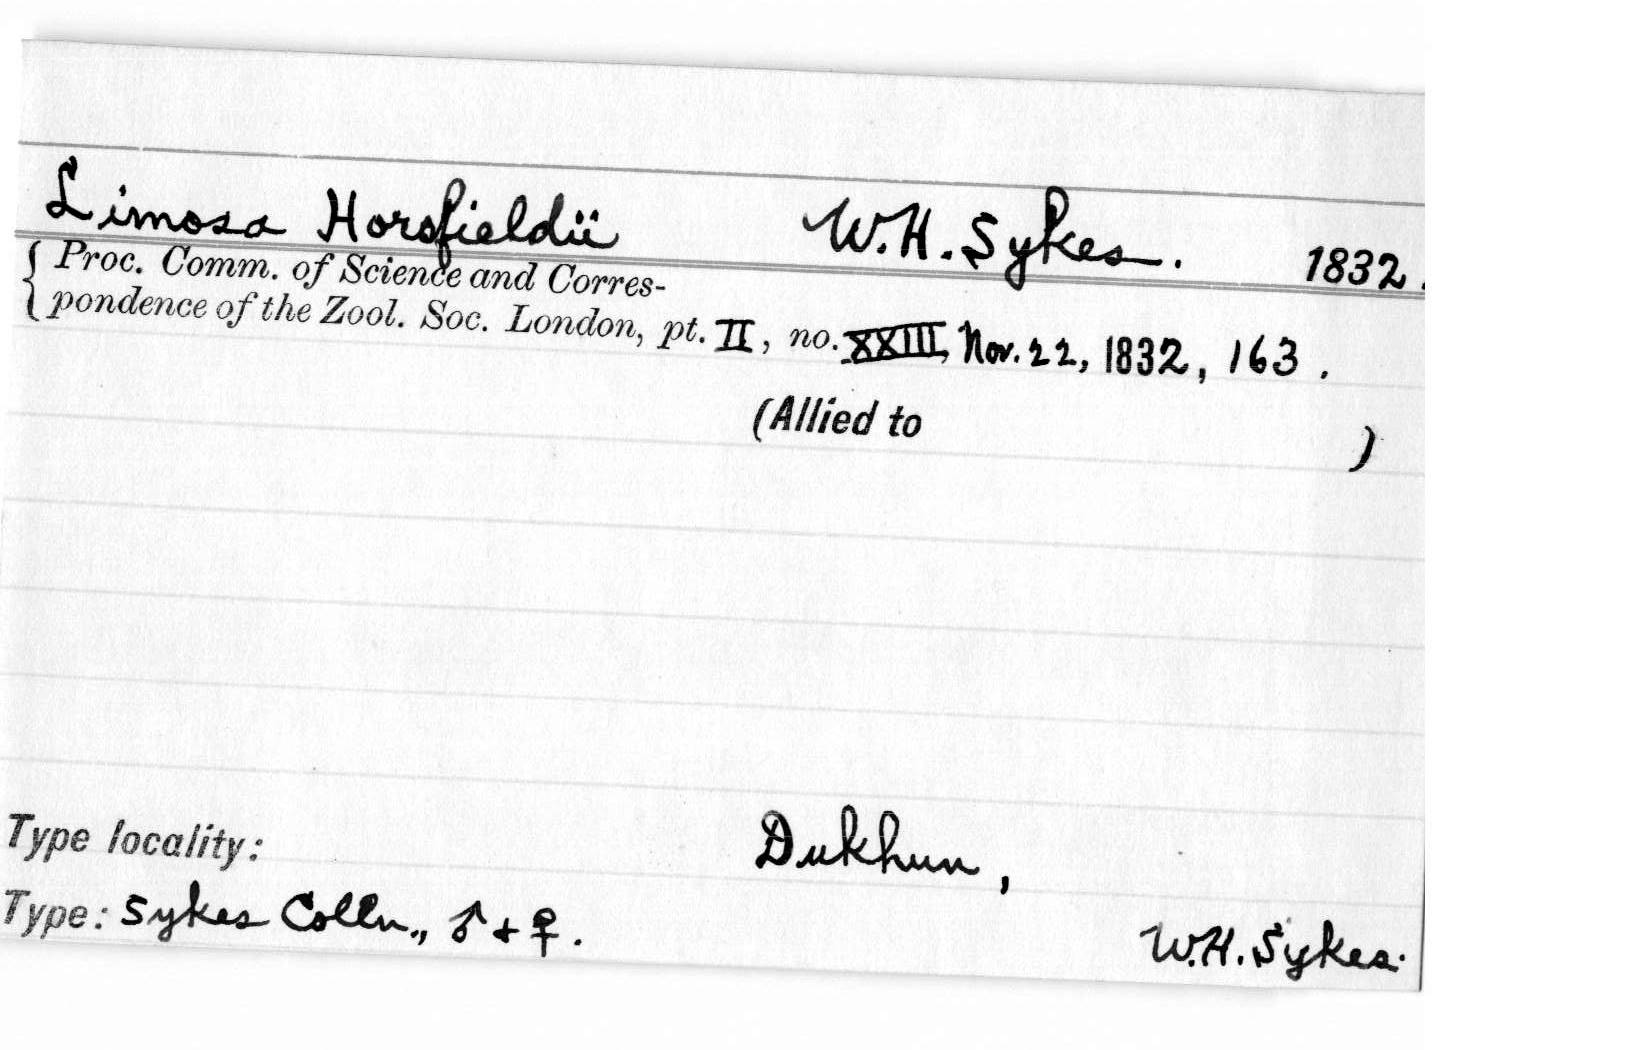 Limosa Horsfieldii W.H. Sykes. 1832.
{ Proc. Comm. of Science and Corres-
pondence of the Zool. Soc. London, pt. II, no. XXIII, Nov. 22, 1832, 163.
(Allied to )
Type locality: Dukhun,
Type: Sykes Colln., ♂ + ♀. W.H. Sykes.